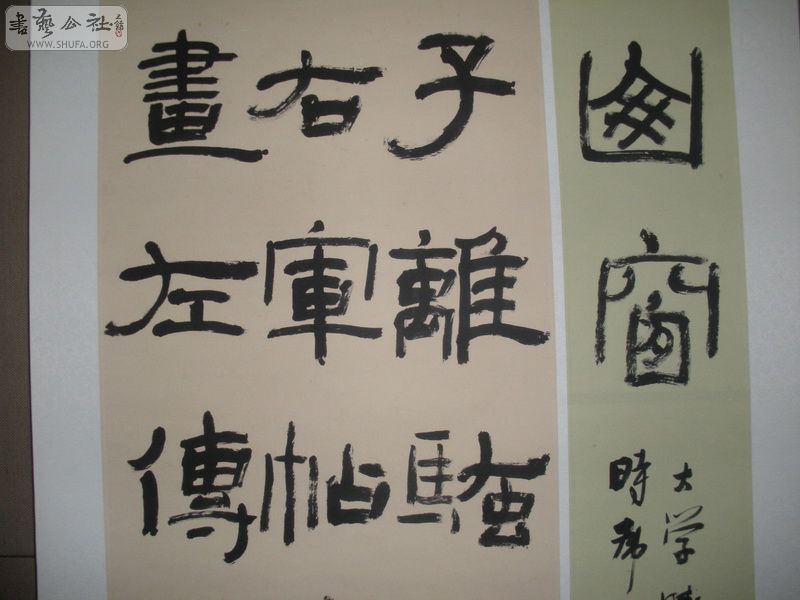 書藝公社
WWW.SHUFA.ORG
窗
大学
時
子離騷
右軍帖
畫左傳